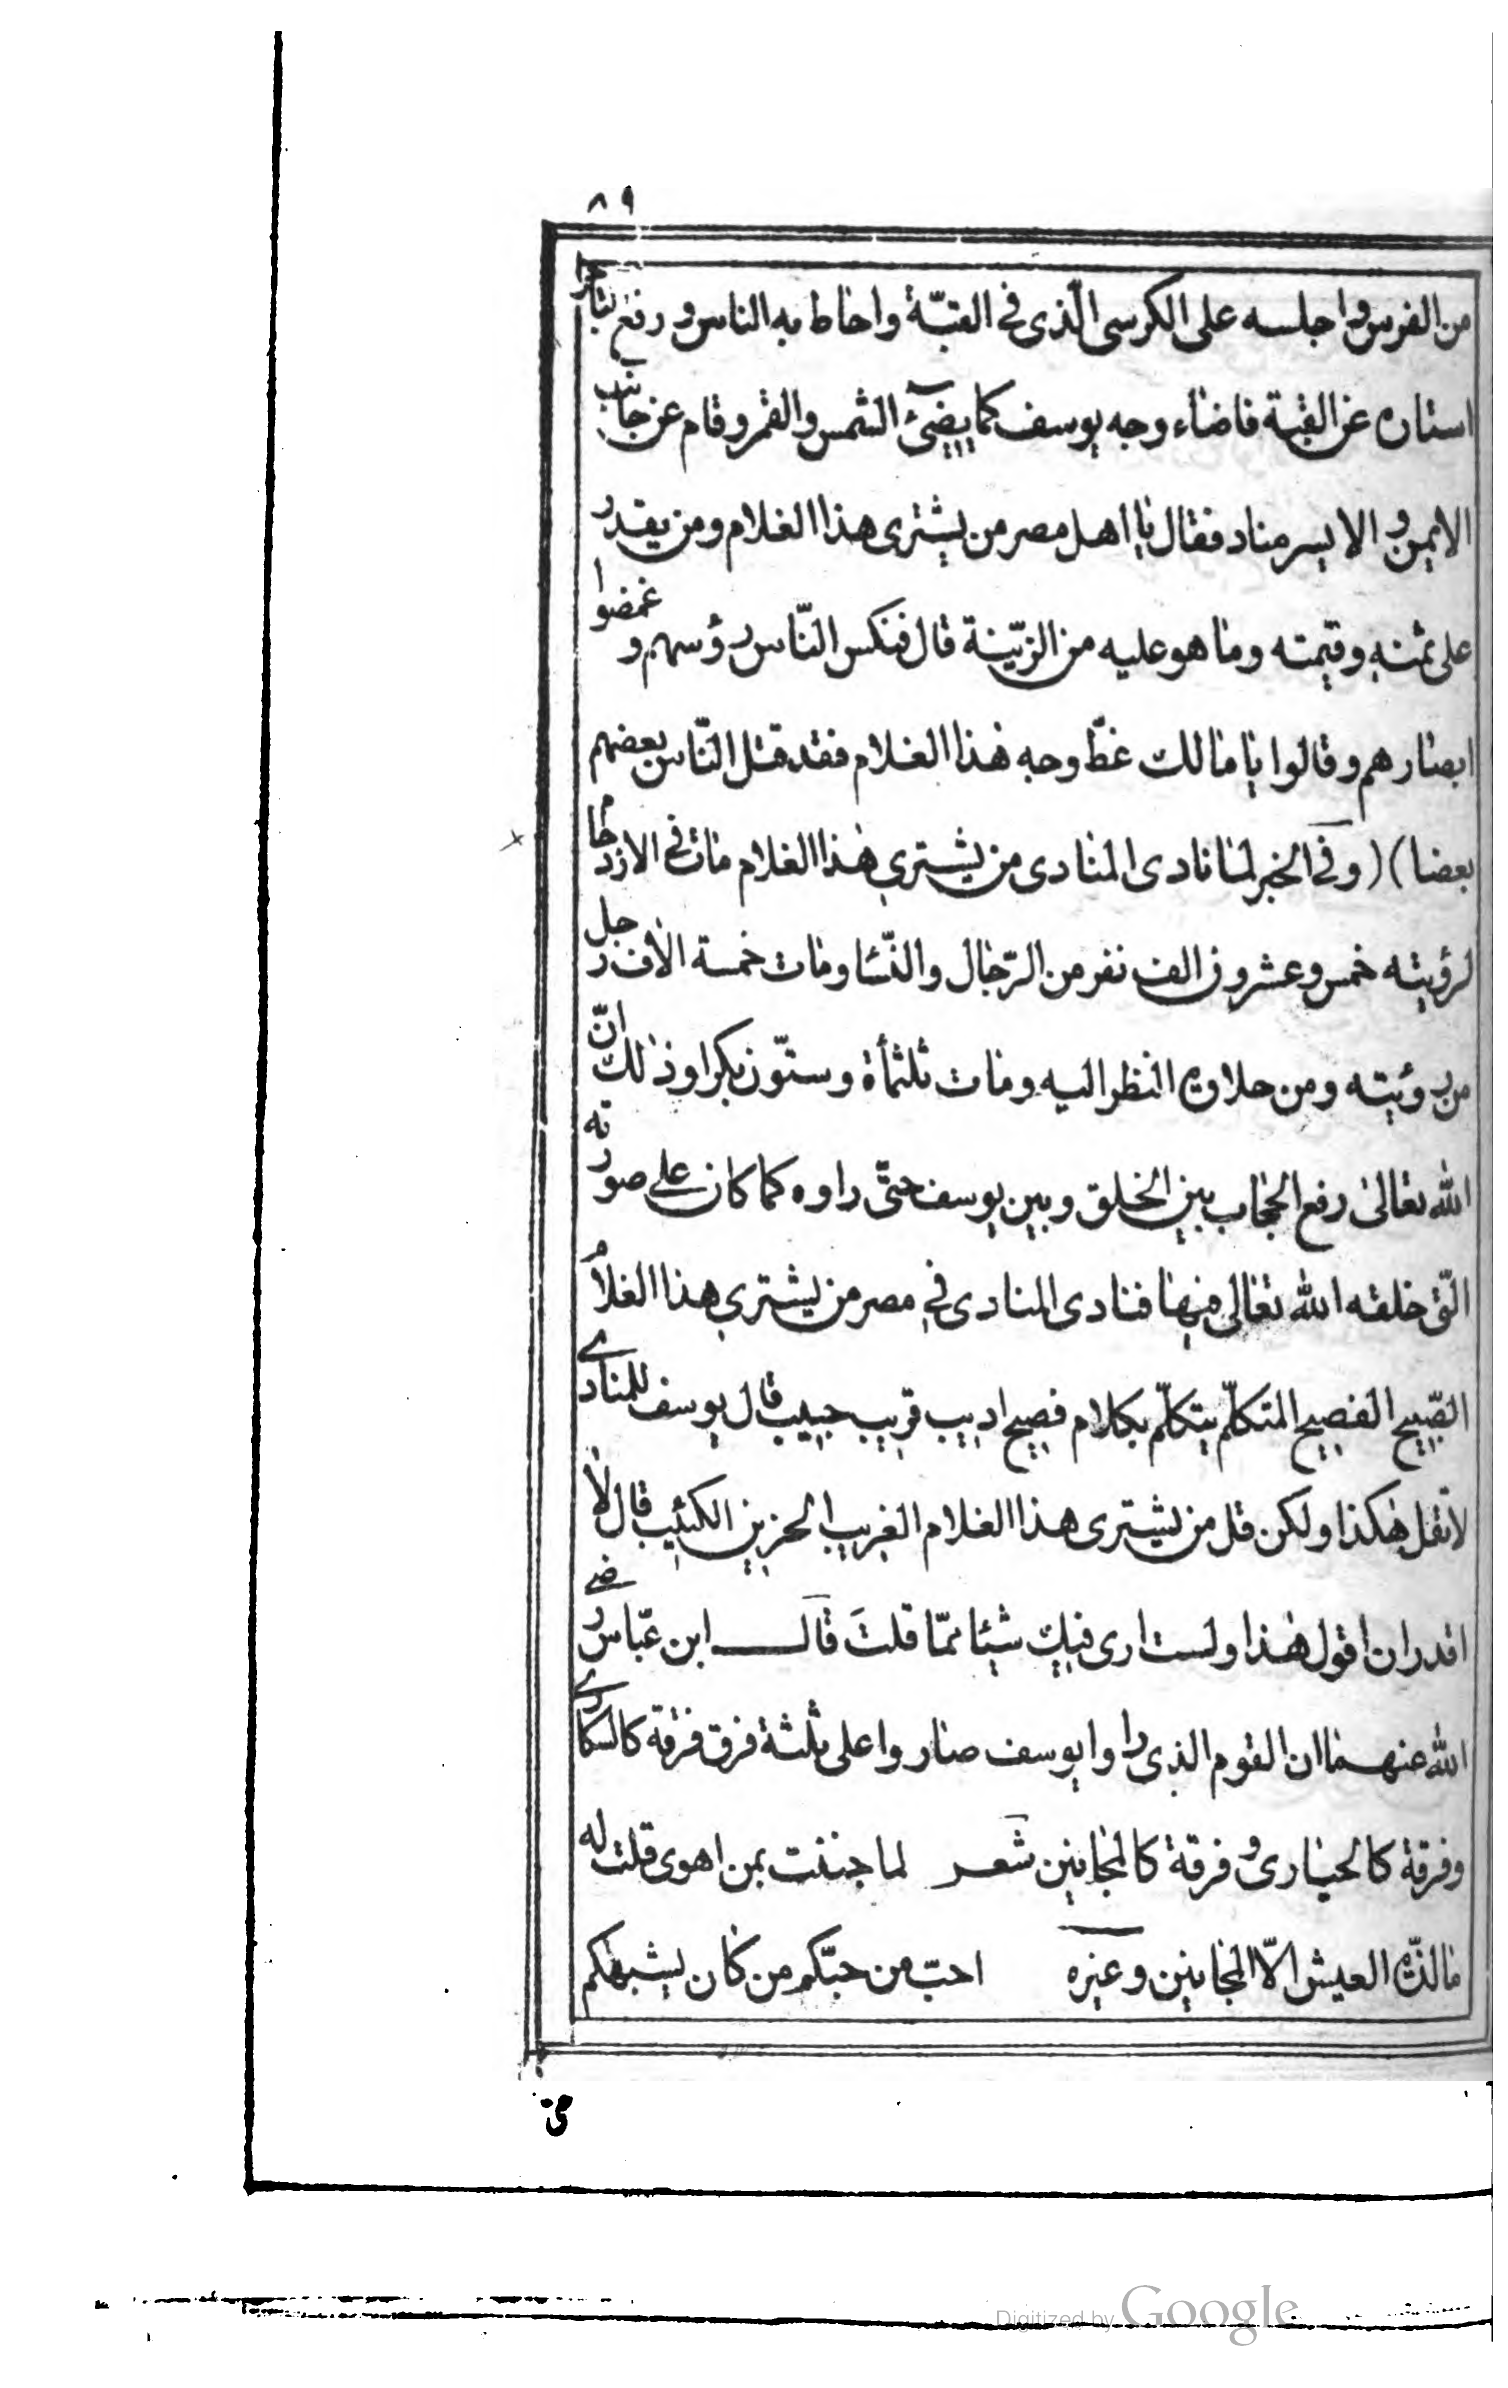 ٨٩
من الفرس واجلسه على الكرسى الّذى فى القبّة واحاط به الناس ورفع
استاره عن القبة فاضاء وجه يوسف كما يضئ الشمس والقمر وقام عن جانب
الايمن والايسر مناد فقال يا اهل مصر من يشترى هذا الغلام ومن يقدر
على ثمنه وقيمته وما هو عليه من الزّينة قال فنكس النّاس رؤسهم وغمضوا
ابصارهم وقالوا يا مالك غطّ وجه هذا الغلام فقد قتل النّاس بعضهم
بعضا) (وفى الخبر لما نادى المنادى من يشترى هذا الغلام مات فى الازدحام
لرؤيته خمس وعشرون الف نفر من الرّجال والنّسا ومات خمسة الاف رجل
من رؤيته ومن حلاوة النظر اليه ومات ثلثمأة وستّون بكرا وذلك انّ
الله تعالى رفع الحجاب بين الخلق وبين يوسف حتّى راوه كما كان على صورته
الّتى خلقه الله تعالى فيها فنادى المنادى فى مصر من يشترى هذا الغلام
الصّبيح الفصيح المتكلّم يتكلّم بكلام فصيح اديب قريب حبيب قال يوسف للمنادى
لا تقل هكذا ولكن قل من يشترى هذا الغلام الغريب الحزين الكئيب قال لا
اقدر ان اقول هذا ولست ارى فيك شيئا ممّا قلتَ قال ابن عبّاس رضى
الله عنهما ان القوم الذى راوا يوسف صاروا على ثلثة فرق فرقة كالسكارى
وفرقة كالحيارى وفرقة كالمجانين شعر لما جننت بمن اهوى قلت له
مالذّة العيش الّا المجانين وغيره احبّ من حبّكم من كان يشبهكم
Digitized by Google